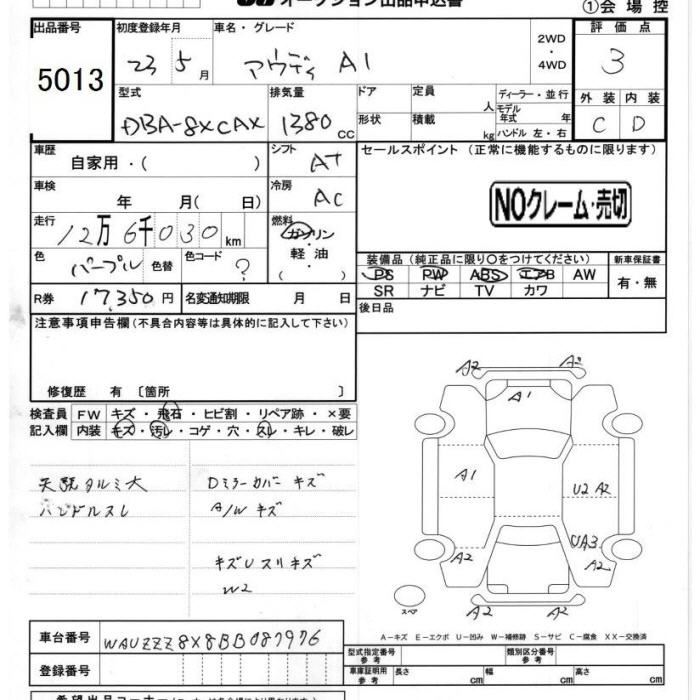 オークション出品申込書
①会場控
出品番号 初度登録年月 車名・グレード 2WD・4WD 評価点
5013 23 5月 アウディ A1 3
型式 排気量 ドア 定員 人 ディーラー・並行 外装 内装
DBA-8XCAX 1380cc 形状 積載 kg モデル年式 年 ハンドル 左・右 C D
車歴 自家用・( ) シフト AT セールスポイント (正常に機能するものに限ります)
車検 年 月( 日) 冷房 AC
NOクレーム・売切
走行 12万6千030km 燃料 ガソリン・軽油・( )
色 パープル 色替 色コード ? 装備品 (純正品に限り〇をつけてください) 新車保証書
PS PW ABS エアB AW 有・無
R券 17,350円 名変通知期限 月 日 SR ナビ TV カワ
注意事項申告欄(不具合内容等は具体的に記入して下さい) 後日品
修復歴 有 [箇所 ]
検査員 FW キズ・飛石・ヒビ割・リペア跡・×要
記入欄 内装 キズ・汚レ・コゲ・穴・スレ・キレ・破レ
天張タルミ大 Dミラーカバーキズ
ハンドルスレ A/Wキズ
キズUスリキズ
W2
A2 A2
A1
A1 U2 A2
UA3
A2 A2
A2 A2
スペア
A−キズ E−エクボ U−凹み W−補修跡 S−サビ C−腐食 XX−交換済
車台番号 WAUZZZ8X8BB087976 型式指定番号 参考 類別区分番号 参考
登録番号 車庫証明用 参考 長さ cm 幅 cm 高さ cm